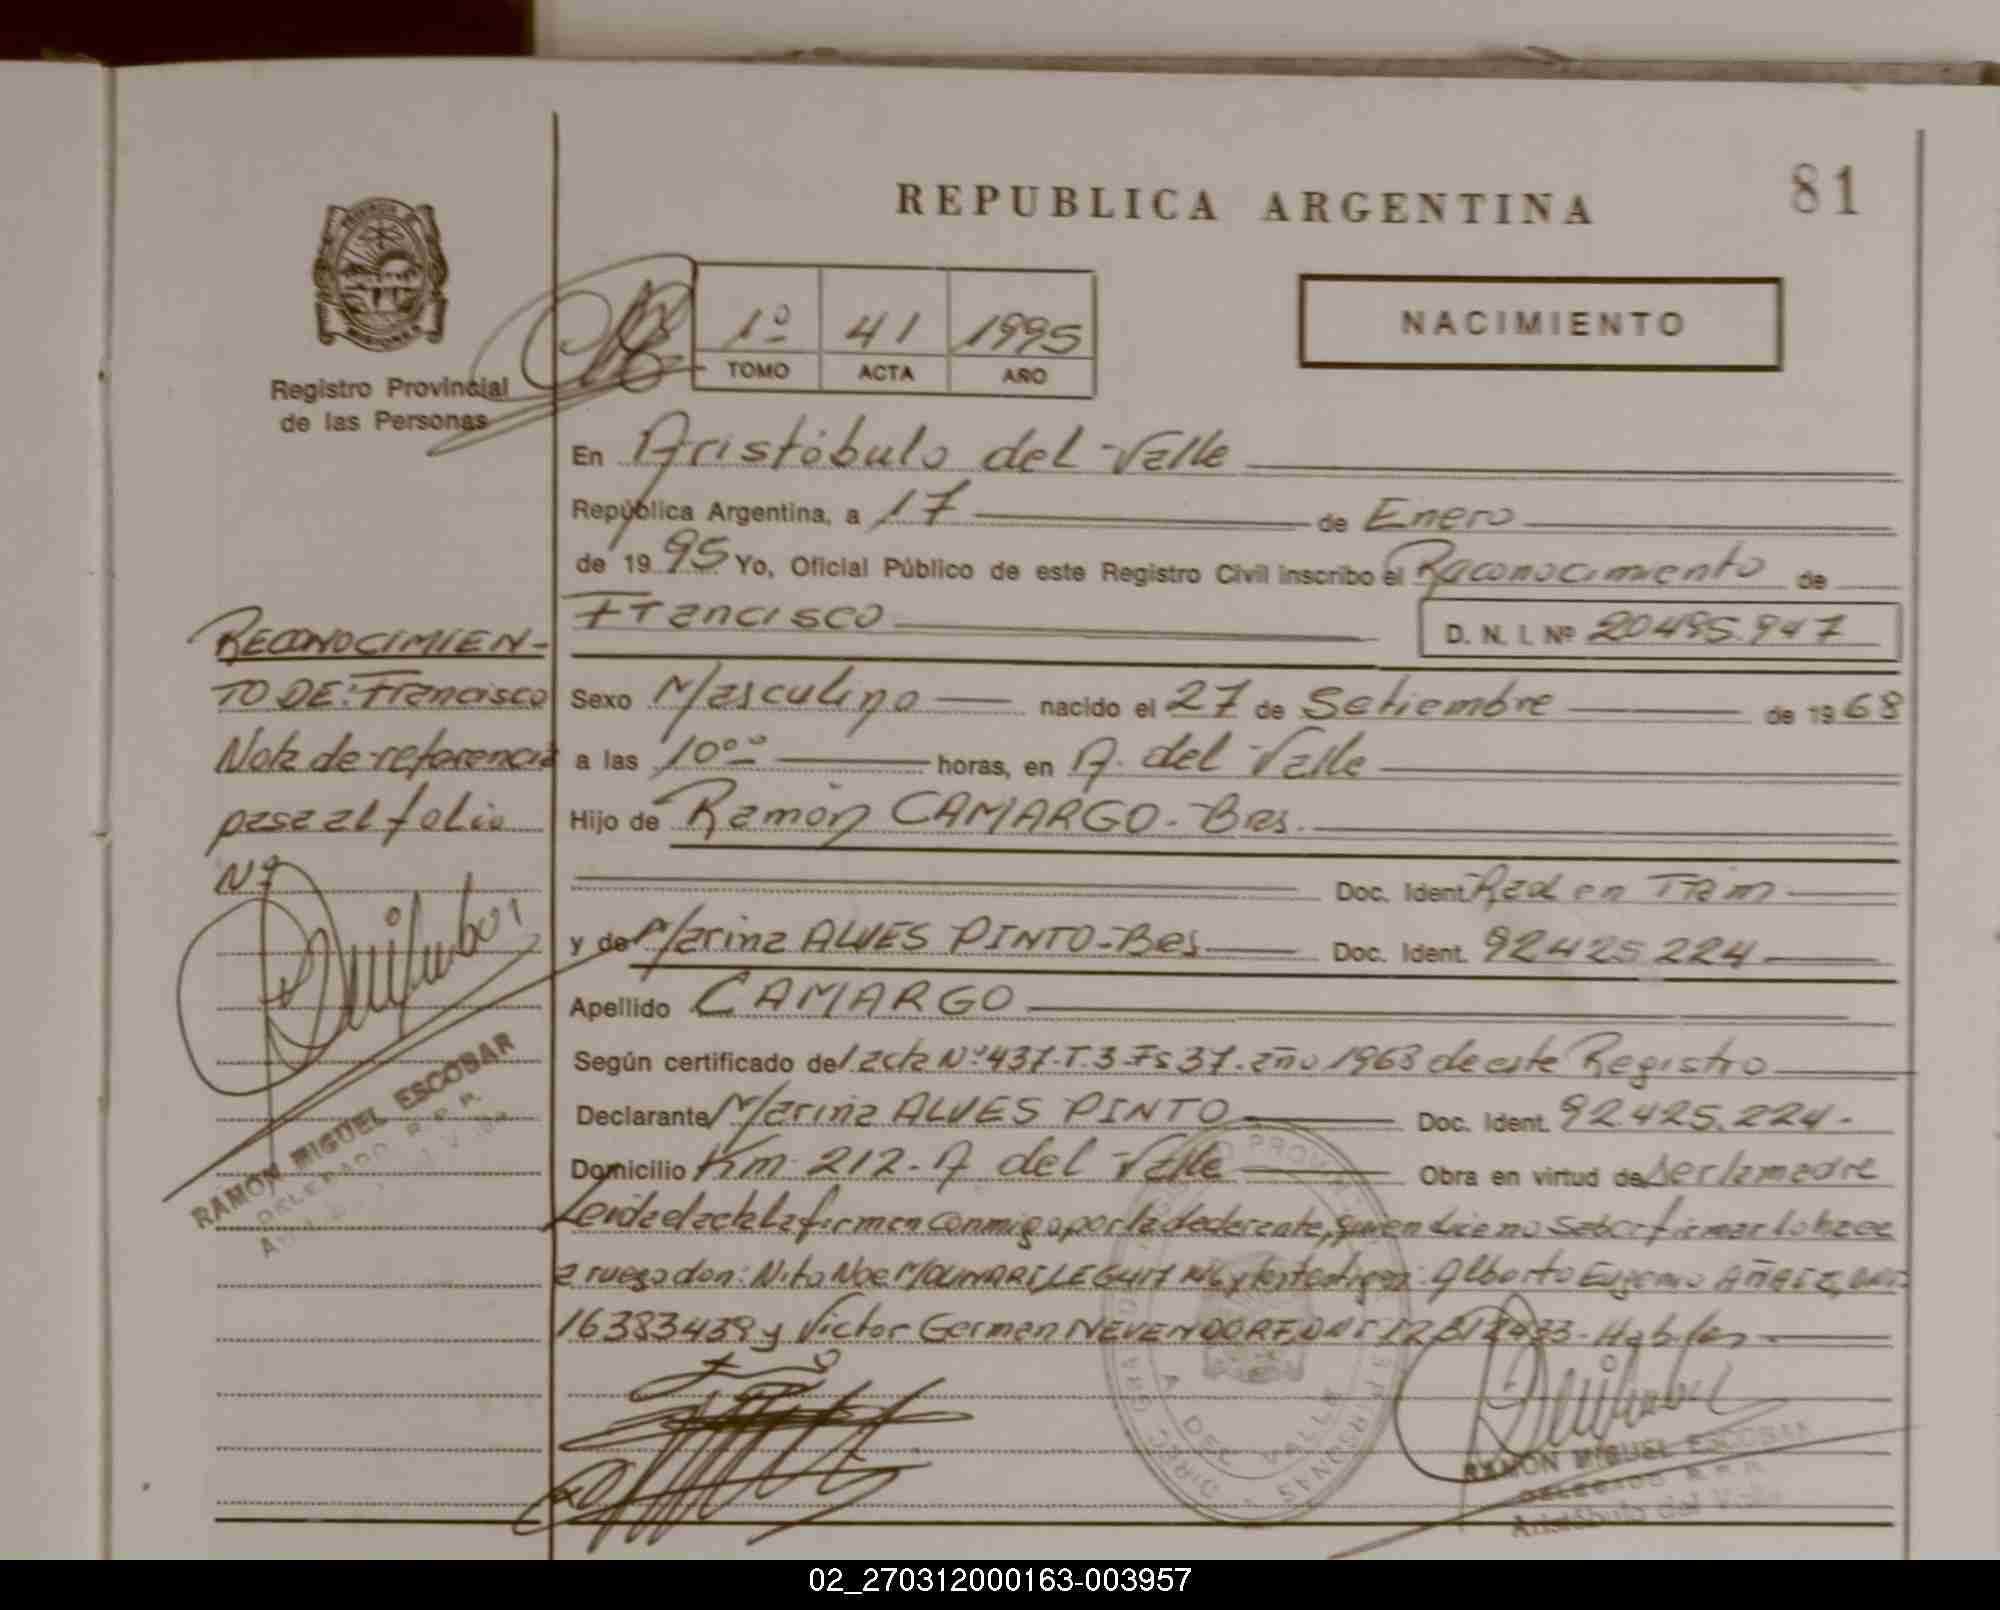 REPUBLICA ARGENTINA
81
Registro Provincial
de las Personas
1º 41 1995
TOMO ACTA AÑO
NACIMIENTO
En Aristóbulo del Valle
República Argentina, a 17 de Enero
de 1995 Yo, Oficial Público de este Registro Civil inscribo el Reconocimiento de
Francisco
D. N. I. Nº 20485.947
RECONOCIMIEN-
TO DE: Francisco
Nota de referencia
pasa al folio
Nº
Sexo Masculino nacido el 27 de Setiembre de 1968
a las 10ºº horas, en A. del Valle
Hijo de Ramón CAMARGO - Bras.
Doc. Ident. Rad en Tram
y de Marina ALVES PINTO - Bras Doc. Ident. 92425.224
Apellido CAMARGO
Según certificado del acta Nº 437. T. 3 Fs 37. año 1968 de este Registro
Declarante Marina ALVES PINTO Doc. Ident. 92.425.224.
Domicilio Km 212. A del Valle Obra en virtud de ser la madre
Leida el acta la firman conmigo por la declarante, quien dice no saber firmar lo hace
a ruego don: Nito Noe MOLINARI LE 6417 y los testigos: Alberto Eugenio
16383439 y Victor German NEVENDORF, DNI Habiles
RAMON MIGUEL ESCOBAR
DELEGADO R.P.P.
A. DEL VALLE
RAMON MIGUEL ESCOBAR
DELEGADO R.P.P.
Aristóbulo del Valle
02_270312000163-003957